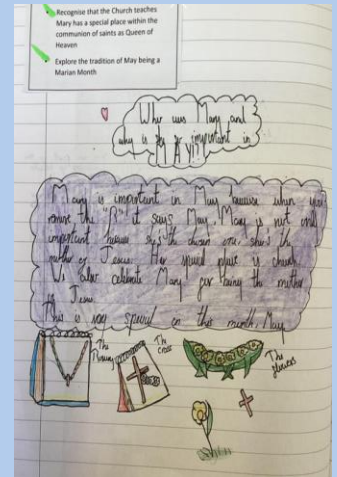 Recognise that the Church teaches
Mary has a special place within the
communion of saints as Queen of
Heaven
Explore the tradition of May being a
Marian Month
Who was Mary and
why is important in
MAY!
Mary is important in May because when you
remove the "R" it says May. Mary is not only
important because she's the chosen one, she's the
mother of Jesus. Her special place is church.
We also celebrate Mary for being the mother
of Jesus.
This is very special in this month, May
The
The
cross
The
flowers